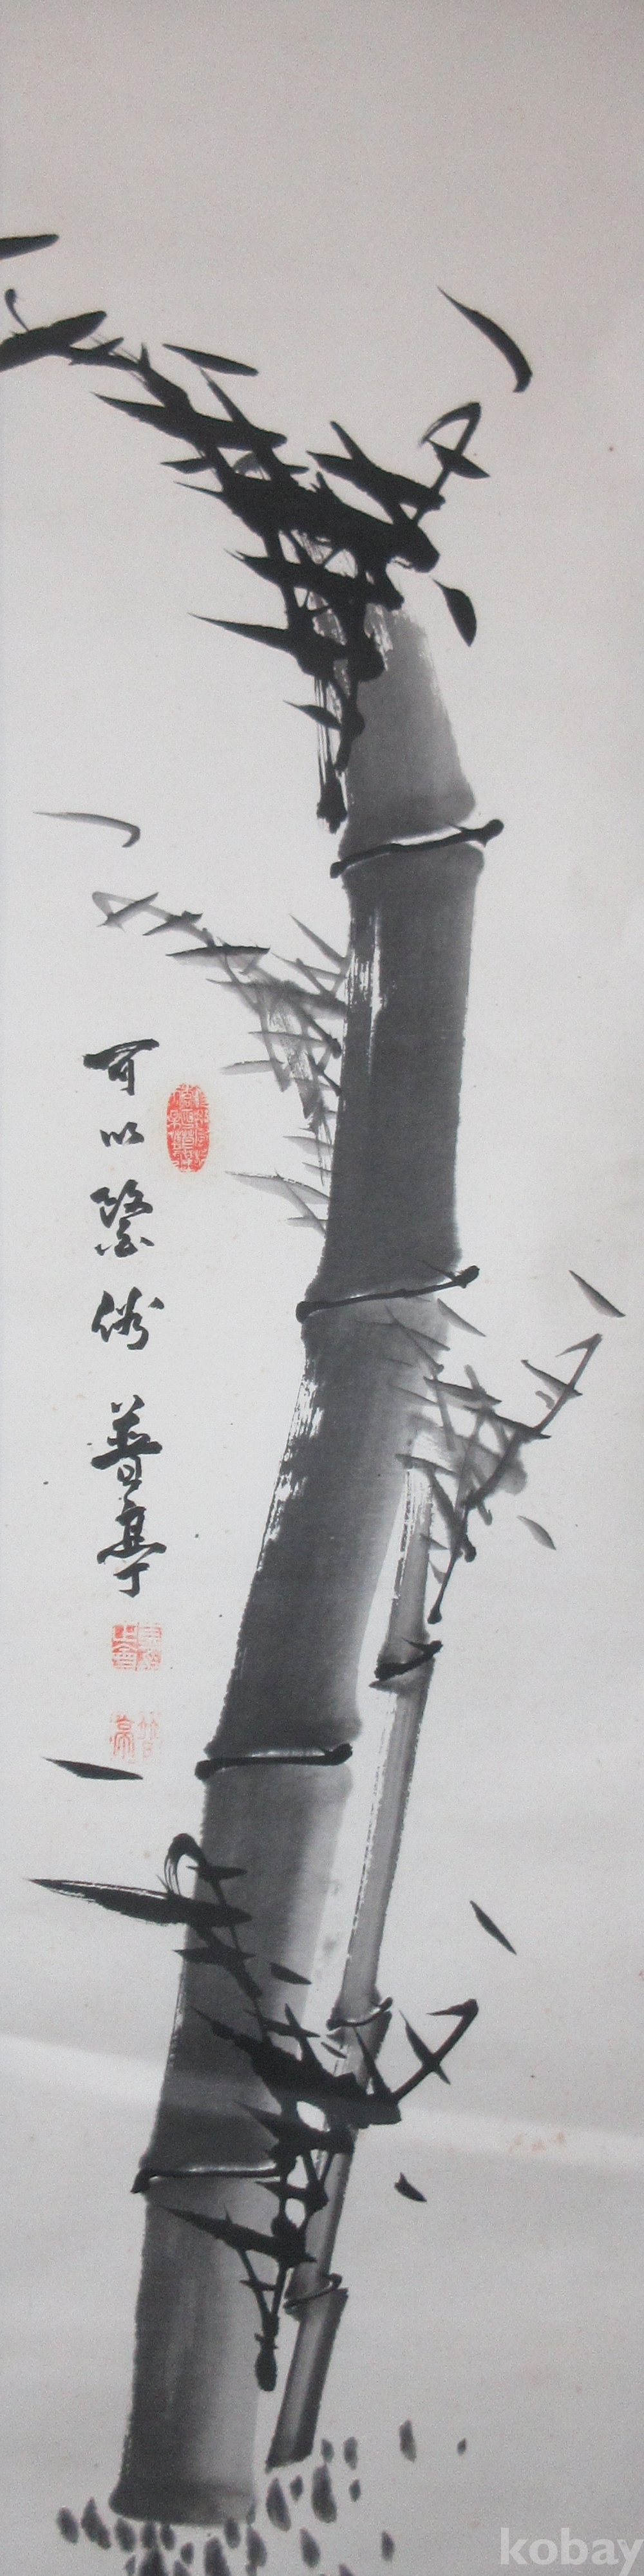 可以醫俗 普亭
kobay